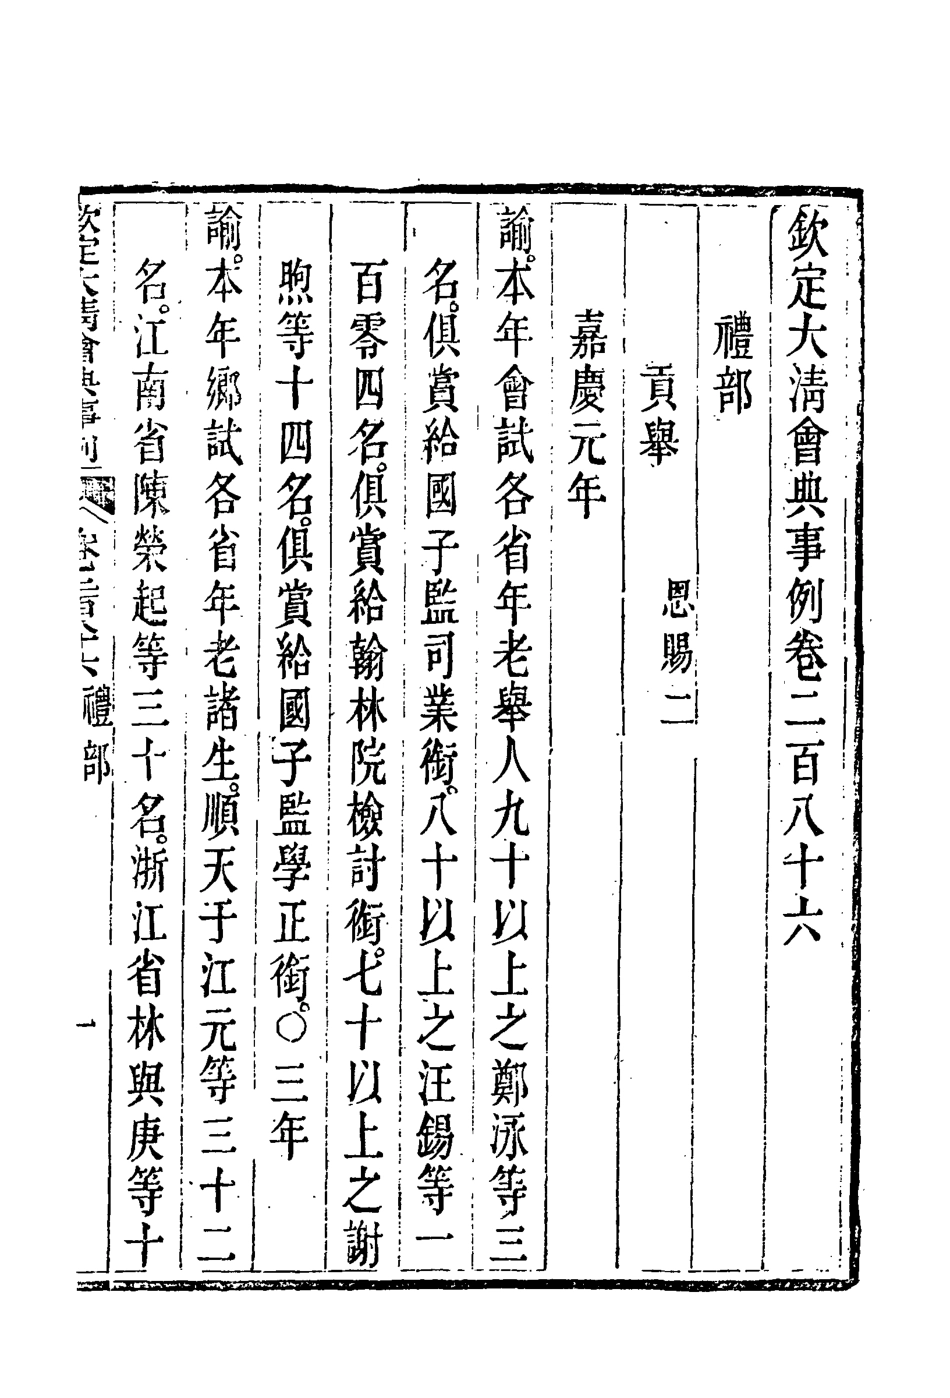 欽定大淸會典事例卷二百八十六
禮部
貢舉
恩賜二
嘉慶元年
諭。本年會試各省年老舉人九十以上之鄭泳等三
名。俱賞給國子監司業銜。八十以上之汪錫等一
百零四名。俱賞給翰林院檢討銜。七十以上之謝
煦等十四名。俱賞給國子監學正銜。〇三年
諭。本年鄉試各省年老諸生。順天于江元等三十二
名。江南省陳榮起等三十名。浙江省林與庚等十
欽定大淸會典事例 卷二百八十六 禮部 一